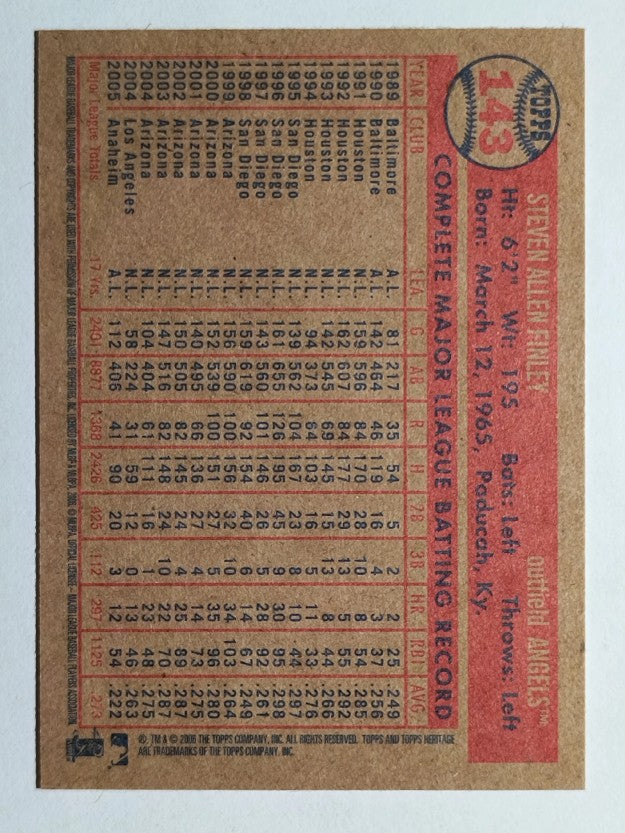 TOPPS
143
STEVEN ALLEN FINLEY outfield ANGELS™
Ht: 6'2" Wt: 195 Bats: Left Throws: Left
Born: March 12, 1965, Paducah, Ky.
COMPLETE MAJOR LEAGUE BATTING RECORD
YEAR CLUB LEA. G AB R H 2B 3B HR RBI AVG.
1989 Baltimore A.L. 81 217 35 54 5 2 2 25 .249
1990 Baltimore A.L. 142 464 46 119 16 4 3 37 .256
1991 Houston N.L. 159 596 84 170 28 10 8 54 .285
1992 Houston N.L. 162 607 84 177 29 13 5 55 .292
1993 Houston N.L. 142 545 69 145 15 13 8 44 .266
1994 Houston N.L. 94 373 64 103 16 5 11 33 .276
1995 San Diego N.L. 139 562 104 167 23 8 10 44 .297
1996 San Diego N.L. 161 655 126 195 45 9 30 95 .298
1997 San Diego N.L. 143 560 101 146 26 5 28 92 .261
1998 San Diego N.L. 159 619 92 154 40 6 14 67 .249
1999 Arizona N.L. 156 590 100 156 32 10 34 103 .264
2000 Arizona N.L. 152 539 100 151 27 5 35 96 .280
2001 Arizona N.L. 140 495 66 136 27 4 14 73 .275
2002 Arizona N.L. 150 505 82 145 24 4 25 89 .287
2003 Arizona N.L. 147 516 82 148 24 10 22 70 .287
2004 Arizona N.L. 104 404 61 111 16 1 23 48 .275
2004 Los Angeles N.L. 58 224 31 59 12 0 13 46 .263
2005 Anaheim A.L. 112 406 41 90 20 3 12 54 .222
Major League Totals 17 Yrs. 2401 8877 1368 2426 425 112 297 1125 .273
®, TM & © 2006 THE TOPPS COMPANY, INC. ALL RIGHTS RESERVED. TOPPS AND TOPPS HERITAGE
ARE TRADEMARKS OF THE TOPPS COMPANY, INC.
MAJOR LEAGUE BASEBALL TRADEMARKS AND COPYRIGHTS ARE USED WITH PERMISSION OF MAJOR LEAGUE BASEBALL PROPERTIES, INC.